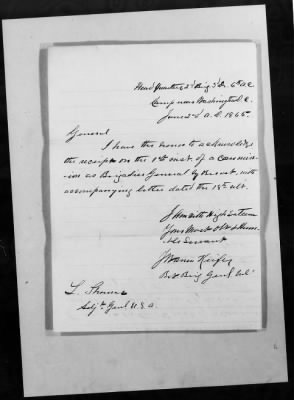 Head Quarters 2d Brig 3d D. 6th A.C.
Camp near Washington D.C.
June 2d A.D. 1865.
General
I have the honor to acknowledge
the receipt on the inst. of a commis-
sion as Brigadier General by Brevet, with
accompanying letter dated the 18th ult.
I am with high esteem
Your Most Obt & Hum-
ble Servant
J Warren Keifer
Bvt Brig Genl Vol
L. Thomas
Adjt. Genl U.S.A.